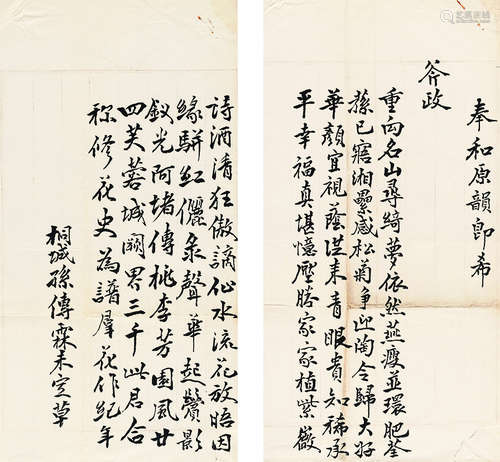 奉和原韻即希
斧政
重向名山尋綺夢依然燕瘦並環肥荃
蓀已寤湘纍感松菊爭迎陶令歸大好
華顏宜視蔭從来青眼貴知稀承
平幸福真堪憶壓勝家家植紫薇
詩酒清狂傲謫仙水流花放晤因
緣駢紅儷綠聲華起鬢影
釵光阿堵傳桃李芳園風廿
四芙蓉城闕界三千此君合
稱修花史為譜羣花作紀年
桐城孫傳霖未定草